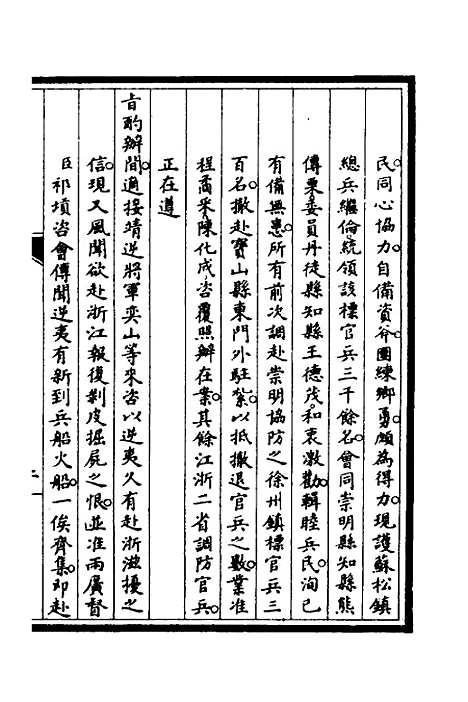 民同心協力自備資斧團練鄉勇頗為得力現護蘇松鎮
總兵繼倫統領該標官兵三千餘名會同崇明縣知縣熊
傳栗委員丹徒縣知縣王德茂和衷激勸輯睦兵民洵已
有備無患所有前次調赴崇明協防之徐州鎮標官兵三
百名撤赴寶山縣東門外駐紮以抵撤退官兵之數業准
程矞采陳化成咨覆照辦在案其餘江浙二省調防官兵
正在遵
旨酌辦間適接靖逆將軍奕山等來咨以逆夷久有赴浙滋擾之
信現又風聞欲赴浙江報復剝皮掘屍之恨並准兩廣督
臣祁墳咨會傳聞逆夷有新到兵船火船一俟齊集即赴